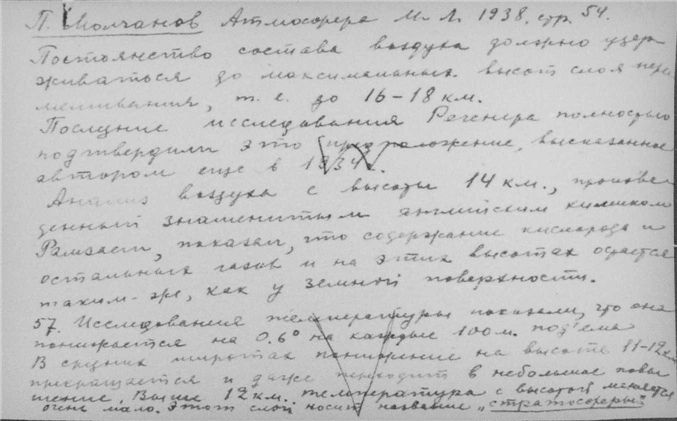 П. Молчанов Атмосфера М. Л. 1938. стр. 54.
Постоянство состава воздуха должно удер
живаться до максимальных высот слоя пере
мешивания, т. е. до 16-18 км.
Последние исследования Регенера полностью
подтвердили это предположение, высказанное
автором еще в 1934 г.
Анализ воздуха с высоты 14 км., произве
денный знаменитым английским химиком
Рамзаем, показал, что содержание кислорода и
остальных газов и на этих высотах остается
таким-же, как у земной поверхности.
57. Исследования температуры показали, что она
понижается на 0.6° на каждые 100 м. под'ема
В средних широтах понижение на высоте 11-12 км
прекращается и даже переходит в небольшое повы
шение. Выше 12 км. температура с высотой меняется
очень мало. Этот слой носит название „стратосферы"